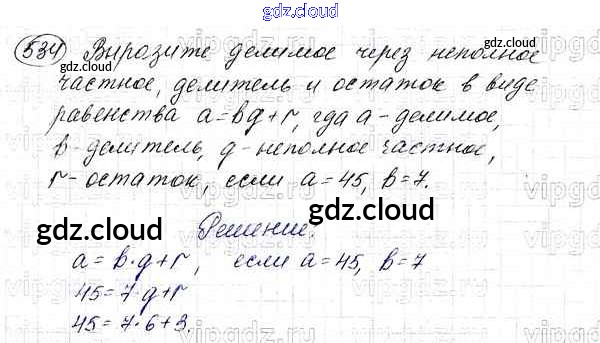 gdz.cloud
534) Вырозите делимое через неполное
частное, делитель и остаток в виде
равенства a=bq+r, где a-делимое,
b-делитель, q-неполное частное,
r-остаток, если a=45, b=7.
gdz.cloud
gdz.cloud
Решение.
a=b·q+r, если a=45, b=7
45=7·q+r
45=7·6+3.
gdz.cloud
gdz.cloud